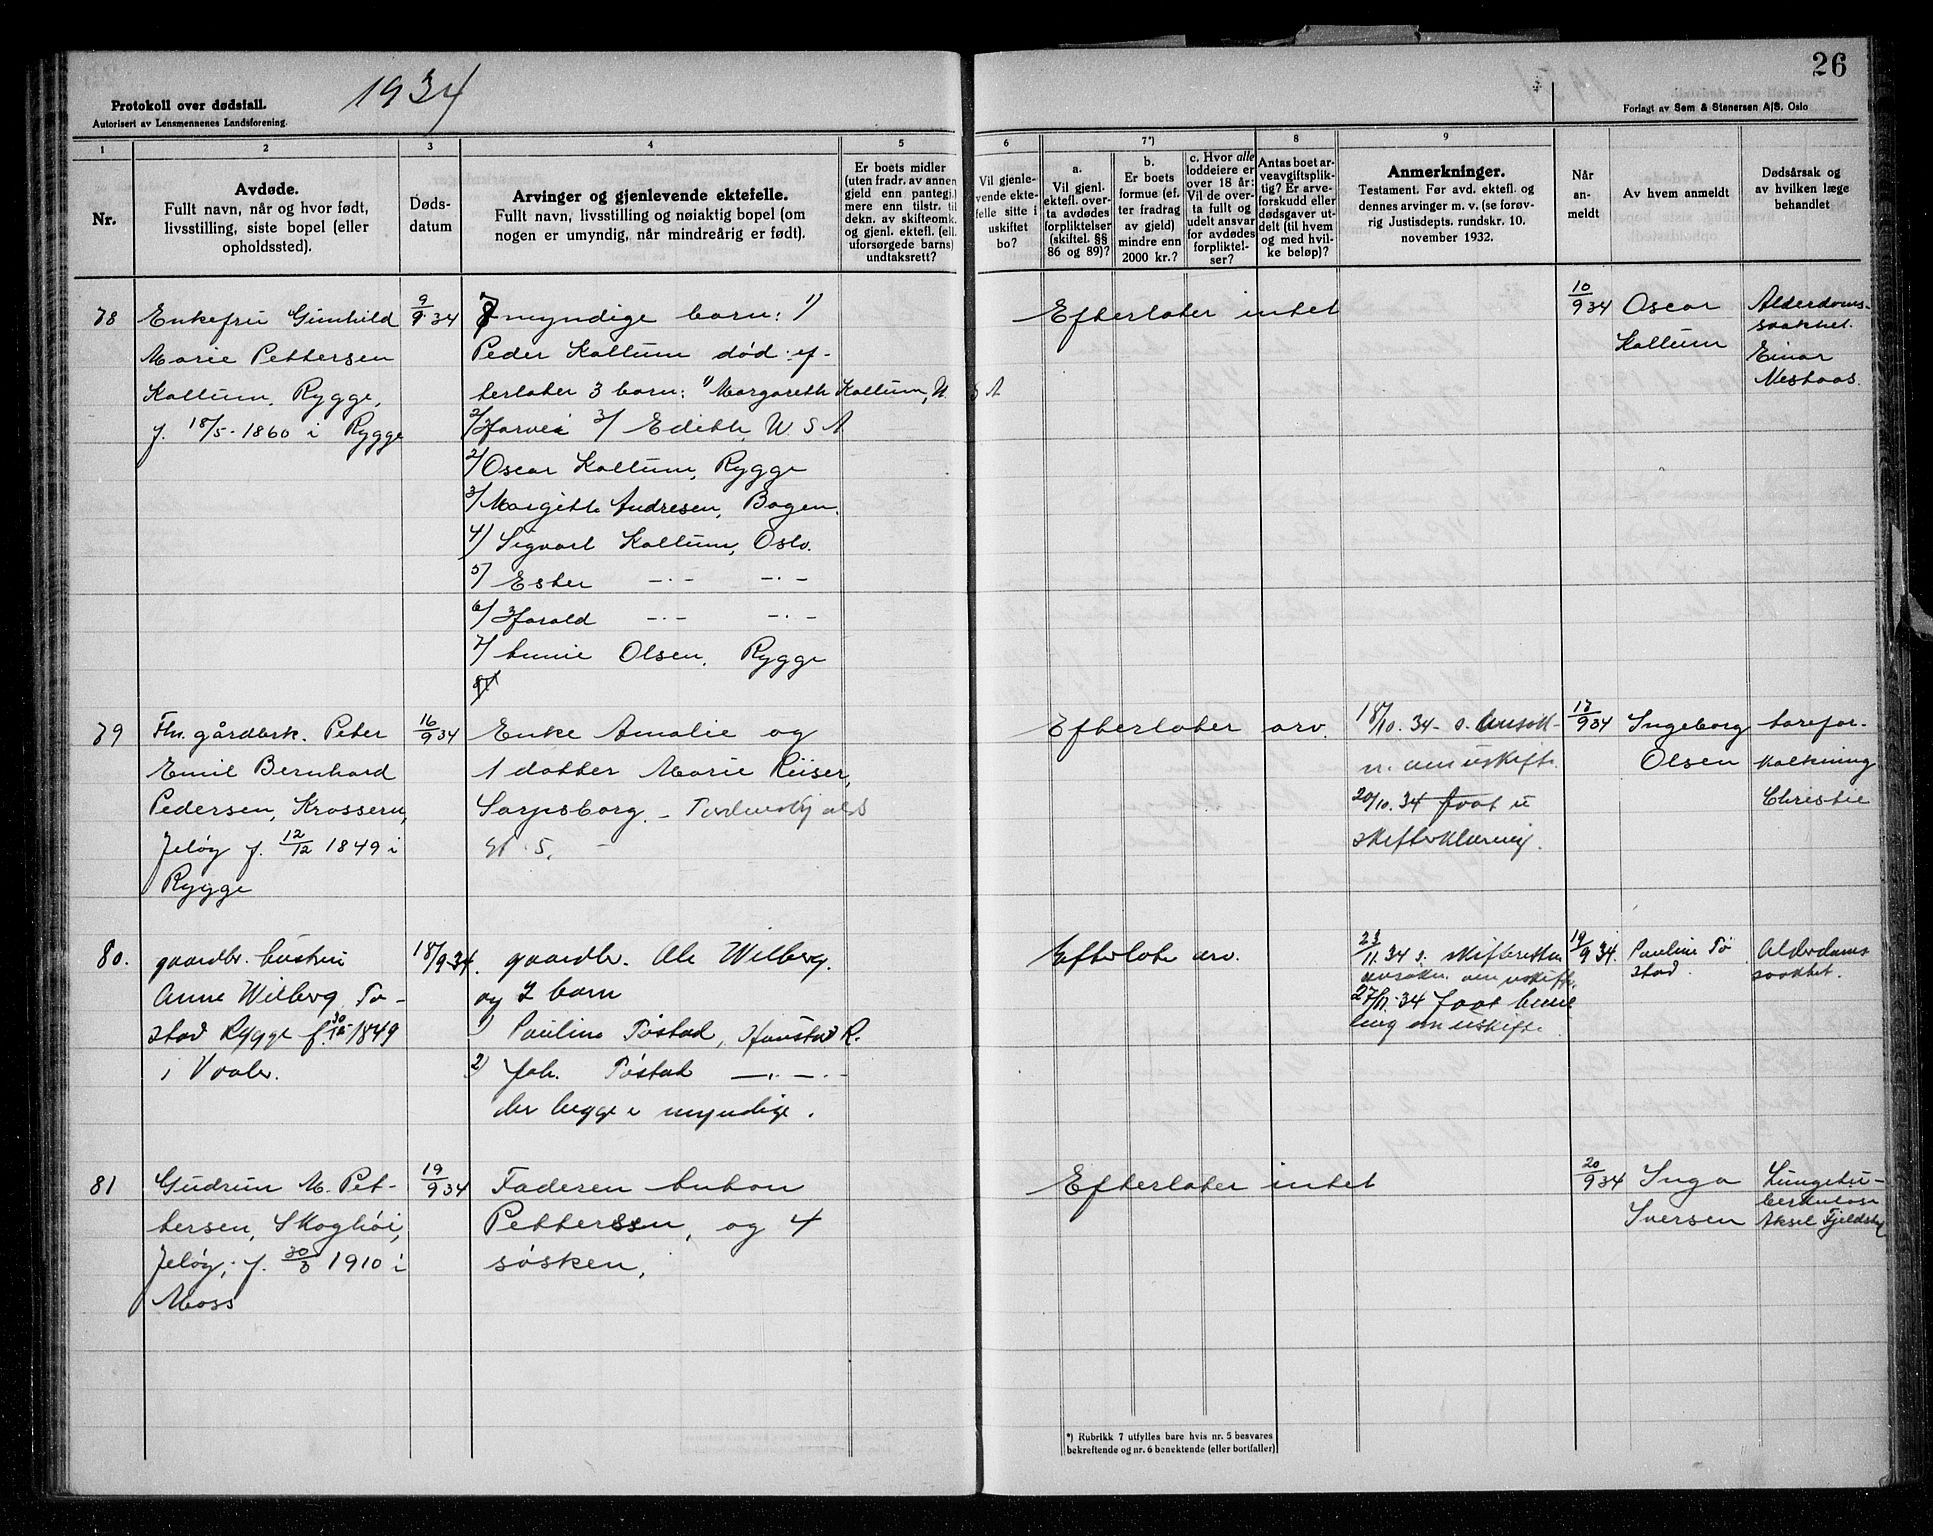 Protokoll over dødsfall.
Autorisert av Lensmennenes Landsforening.
1934
26
Forlagt av Sem & Stenersen A/S. Oslo
1
2
3
4
5
6
7*)
8
9
Nr.
Avdøde.
Fullt navn, når og hvor født,
livsstilling, siste bopel (eller
opholdssted).
Døds-
datum
Arvinger og gjenlevende ektefelle.
Fullt navn, livsstilling og nøiaktig bopel (om
nogen er umyndig, når mindreårig er født).
Er boets midler
(uten fradr. av annen
gjeld enn pantegj.)
mere enn tilstr. til
dekn. av skifteomk.
og gjenl. ektefl. (ell.
uforsørgede barns)
undtaksrett?
Vil gjenle-
vende ekte-
felle sitte i
uskiftet
bo?
a.
Vil gjenl.
ektefl. over-
ta avdødes
forpliktelser
(skiftel. §§
86 og 89)?
b.
Er boets
formue (ef-
ter fradrag
av gjeld)
mindre enn
2000 kr.?
c. Hvor alle
loddeiere er
over 18 år:
Vil de over-
ta fullt og
udelt ansvar
for avdødes
forpliktel-
ser?
Antas boet ar-
veavgiftsplik-
tig? Er arve-
forskudd eller
dødsgaver ut-
delt (til hvem
og med hvil-
ke beløp)?
Anmerkninger.
Testament. Før avd. ektefl. og
dennes arvinger m. v. (se forøv-
rig Justisdepts. rundskr. 10.
november 1932.
Når
an-
meldt
Av hvem anmeldt
Dødsårsak og
av hvilken læge
behandlet
78
Enkefru Gunhild
Marie Pettersen
Kallum, Rygge,
f. 18/5-1860 i Rygge
9/9 34
7 myndige barn: 1)
Peder Kallum død: ef-
terlater 3 barn: 1) Margareth Kallum, U S A
2/ Harvei 3/ Edith, U S A
2/ Oscar Kallum, Rygge
3/ Margith Andresen, Bogen.
4) Sigvart Kallum, Oslo.
5) Ester -.- -.-
6/ Harald -.- -.-
7/ Annie Olsen, Rygge
8/
Efterlater intet
10/9 34
Oscar
Kallum
Alderdoms-
svakhet.
Einar
Mestaas.
79
Fhv. gårdbrk. Peter
Emil Bernhard
Pedersen, Krossern,
Jeløy f. 12/12 1849 i
Rygge
16/9 34
Enke Amalie og
1 datter Marie Riiser,
Sarpsborg. - Tordenskjolds
gt. 5.
Efterlater arv.
18/10. 34 - s. ansøk-
n. om uskifte.
20/10. 34 faat u
skifteklæring.
17/9 34
Ingeborg
Olsen
aarefor-
kalkning
Christie
80.
gaardbr. hustru
Anne Wilberg To-
stad Rygge f. 30/12 1849
i Vaaler.
18/9-34.
gaardbr. Ole Wilberg.
og 2 barn
1) Pauline Tøstad, Haustad R.
2) Joh. Tøstad -.-.-
der begge er myndige.
Efterlate arv.
23/11. 34 s. skifteretten
ansøkn. om uskifte.
27/11-34 faat bevil
ling om uskifte.
19/9 34.
Pauline Tø
stad.
Alderdoms
svakhet.
81
Gudrun M. Pet-
tersen, Skoghöi,
Jeløy; f. 30/3 1910 i
Moss
19/9 34
Faderen Anton
Pettersen, og 4
søsken,
Efterlater intet
20/9 34
Inga
Iversen
Lungetu-
berkulose
Aksel Fjeldstad
*) Rubrikk 7 utfylles bare hvis nr. 5 besvares
bekreftende og nr. 6 benektende (eller bortfaller)